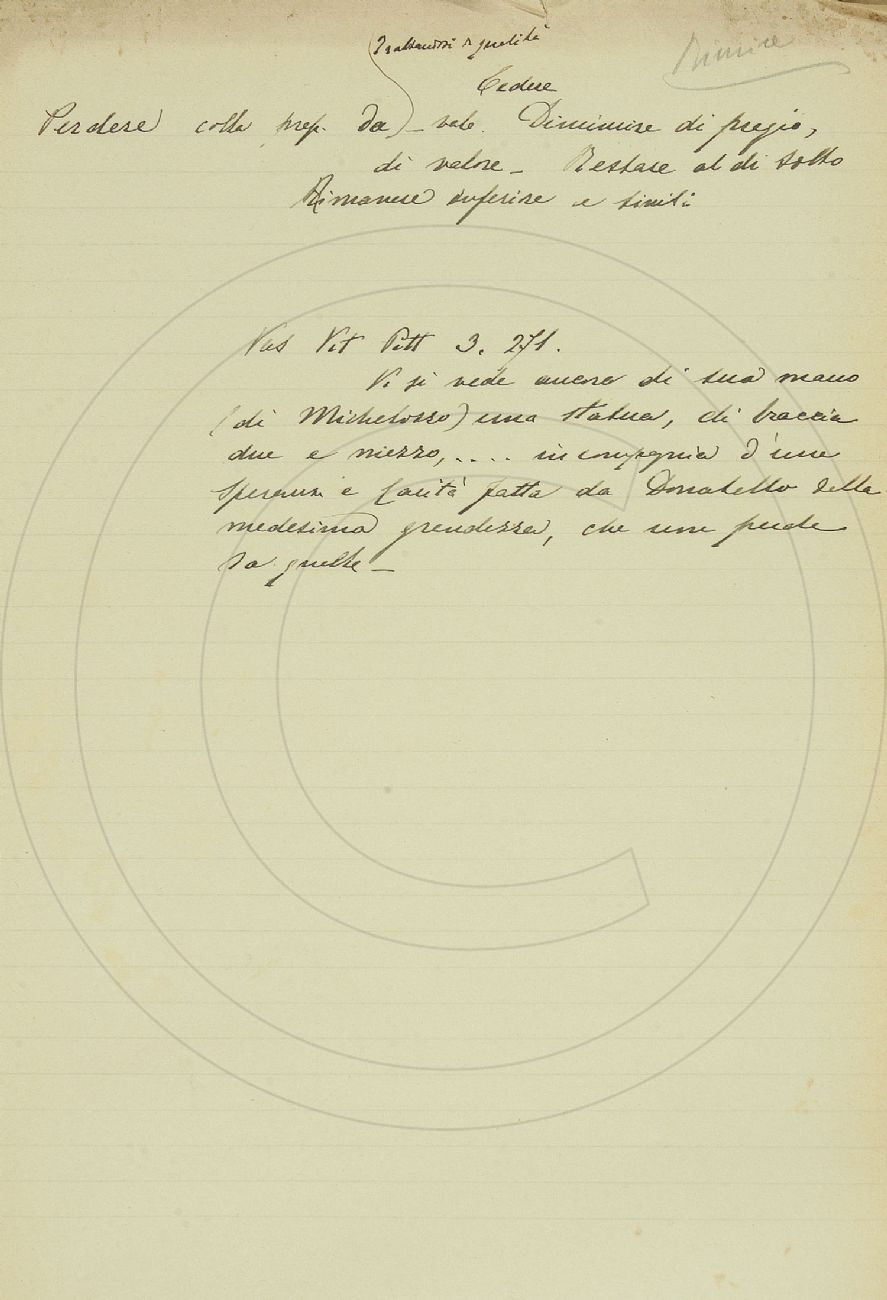 Trattandosi di qualità
Cedere
Perdere colla prep. da) – vale. Diminuire di pregio,
di valore – Restare al di sotto
Rimanere inferiore e simili
Vas Vit Pitt 3. 271.
Vi si vede ancora di sua mano
(di Michelozzo) una statua, di braccia
due e mezzo, .... in compagnia d'una
Speranza e Carità fatta da Donatello della
medesima grandezza, che non perde
da quelle –